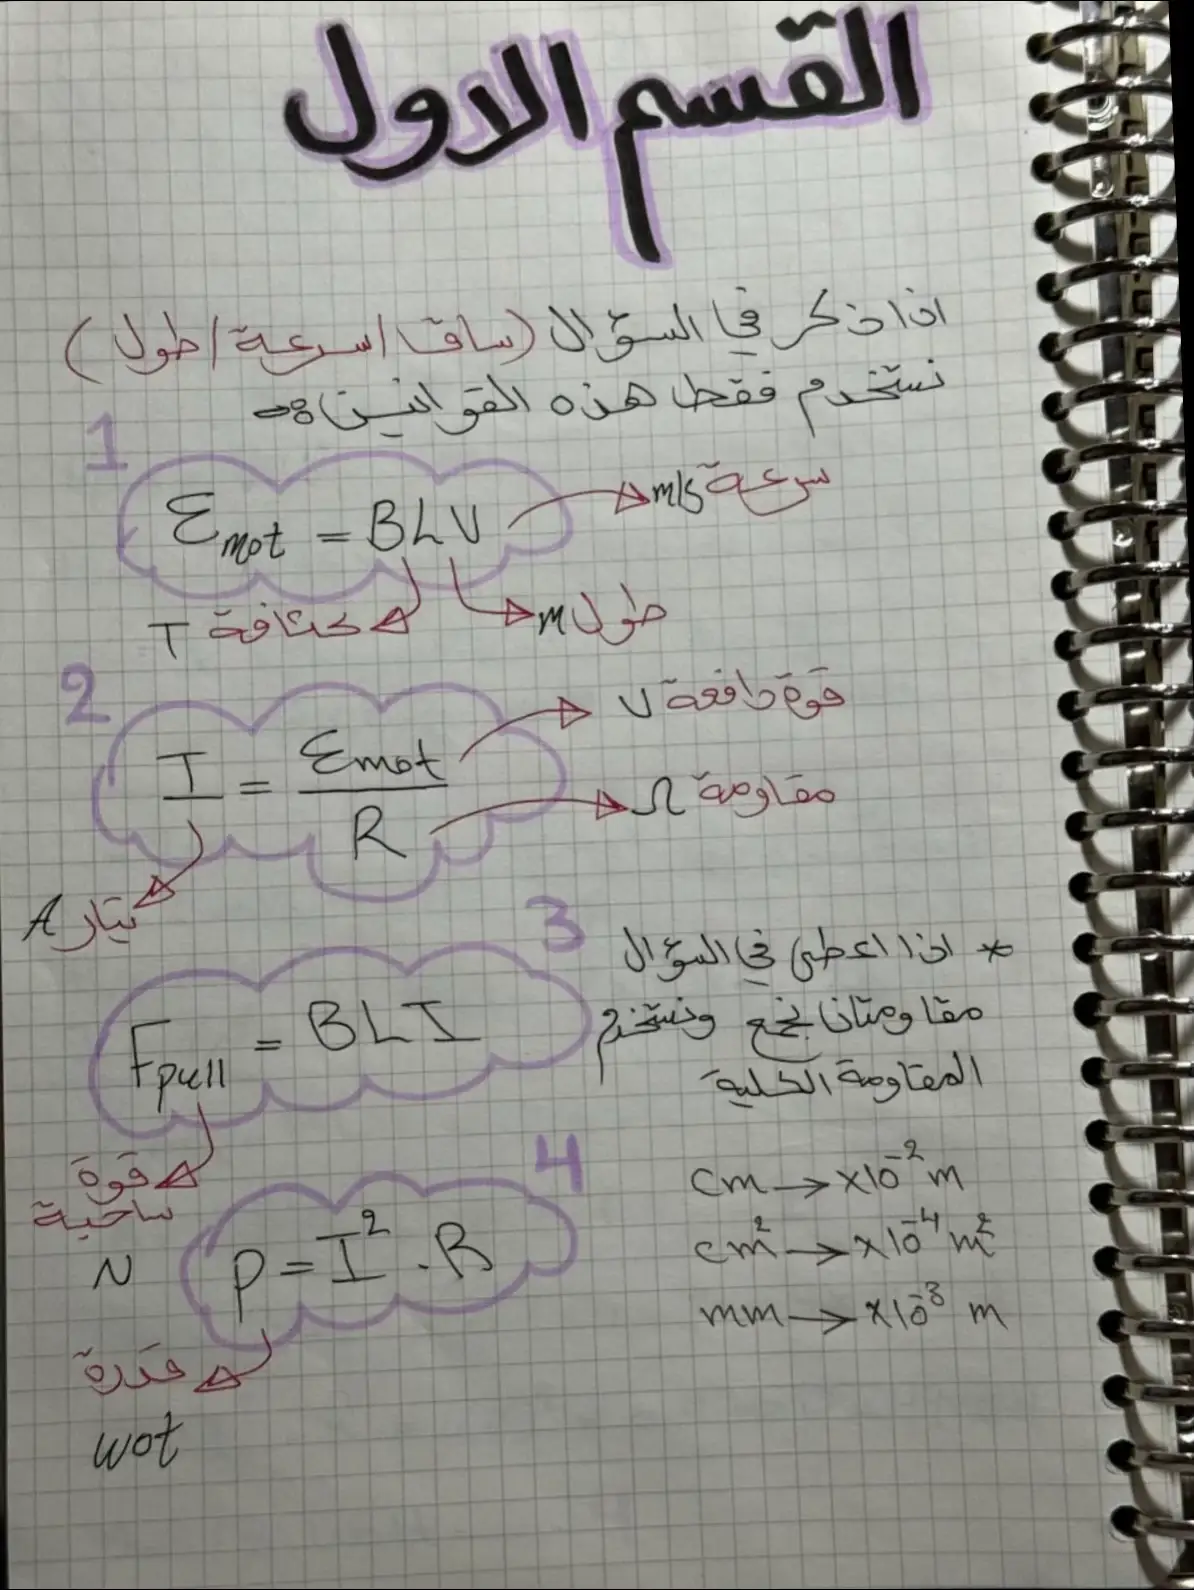 القسم الاول
اذا ذكر في السؤال (ساق / سرعة / طول)
نستخدم فقط هذه القوانين :-
1
Ɛmot = BLV
سرعة m/s
كثافة T
طول m
2
I = Ɛmot / R
قوة دافعة V
مقاومة Ω
تيار A
3
Fpull = BLI
* اذا اعطى في السؤال
مقاومتان نجمع ونستخدم
المقاومة الكلية
قوة
ساحبة
N
4
P = I² . R
قدرة
wot
cm → ×10⁻² m
cm² → ×10⁻⁴ m²
mm → ×10⁻³ m